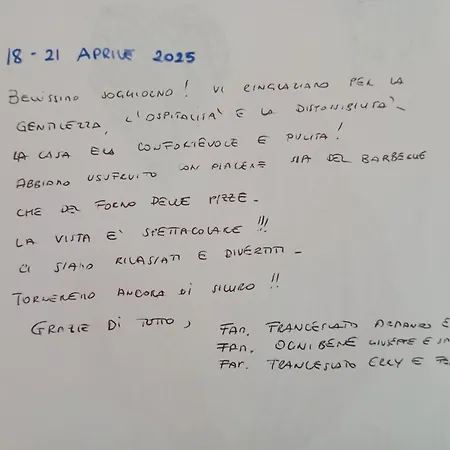 18 - 21 APRILE 2025
BELLISSIMO SOGGIORNO! VI RINGRAZIAMO PER LA
GENTILEZZA, L'OSPITALITA' E LA DISPONIBILITA'-
LA CASA ERA CONFORTEVOLE E PULITA!
ABBIAMO USUFRUITO CON PIACERE SIA DEL BARBECUE
CHE DEL FORNO DELLE PIZZE-
LA VISTA E' SPETTACOLARE!!!
CI SIAMO RILASSATI E DIVERTITI-
TORNEREMO ANCORA DI SICURO!!
GRAZIE DI TUTTO,
FAM. FRANCESCATO ARMANDO E
FAM. OGNIBENE GIUSEPPE E
FAM. FRANCESCATO ELLY E